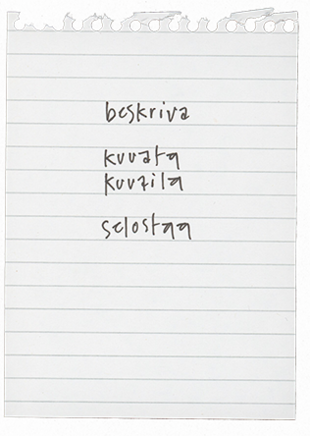 beskriva
kuvata
kuvaila
selostaa